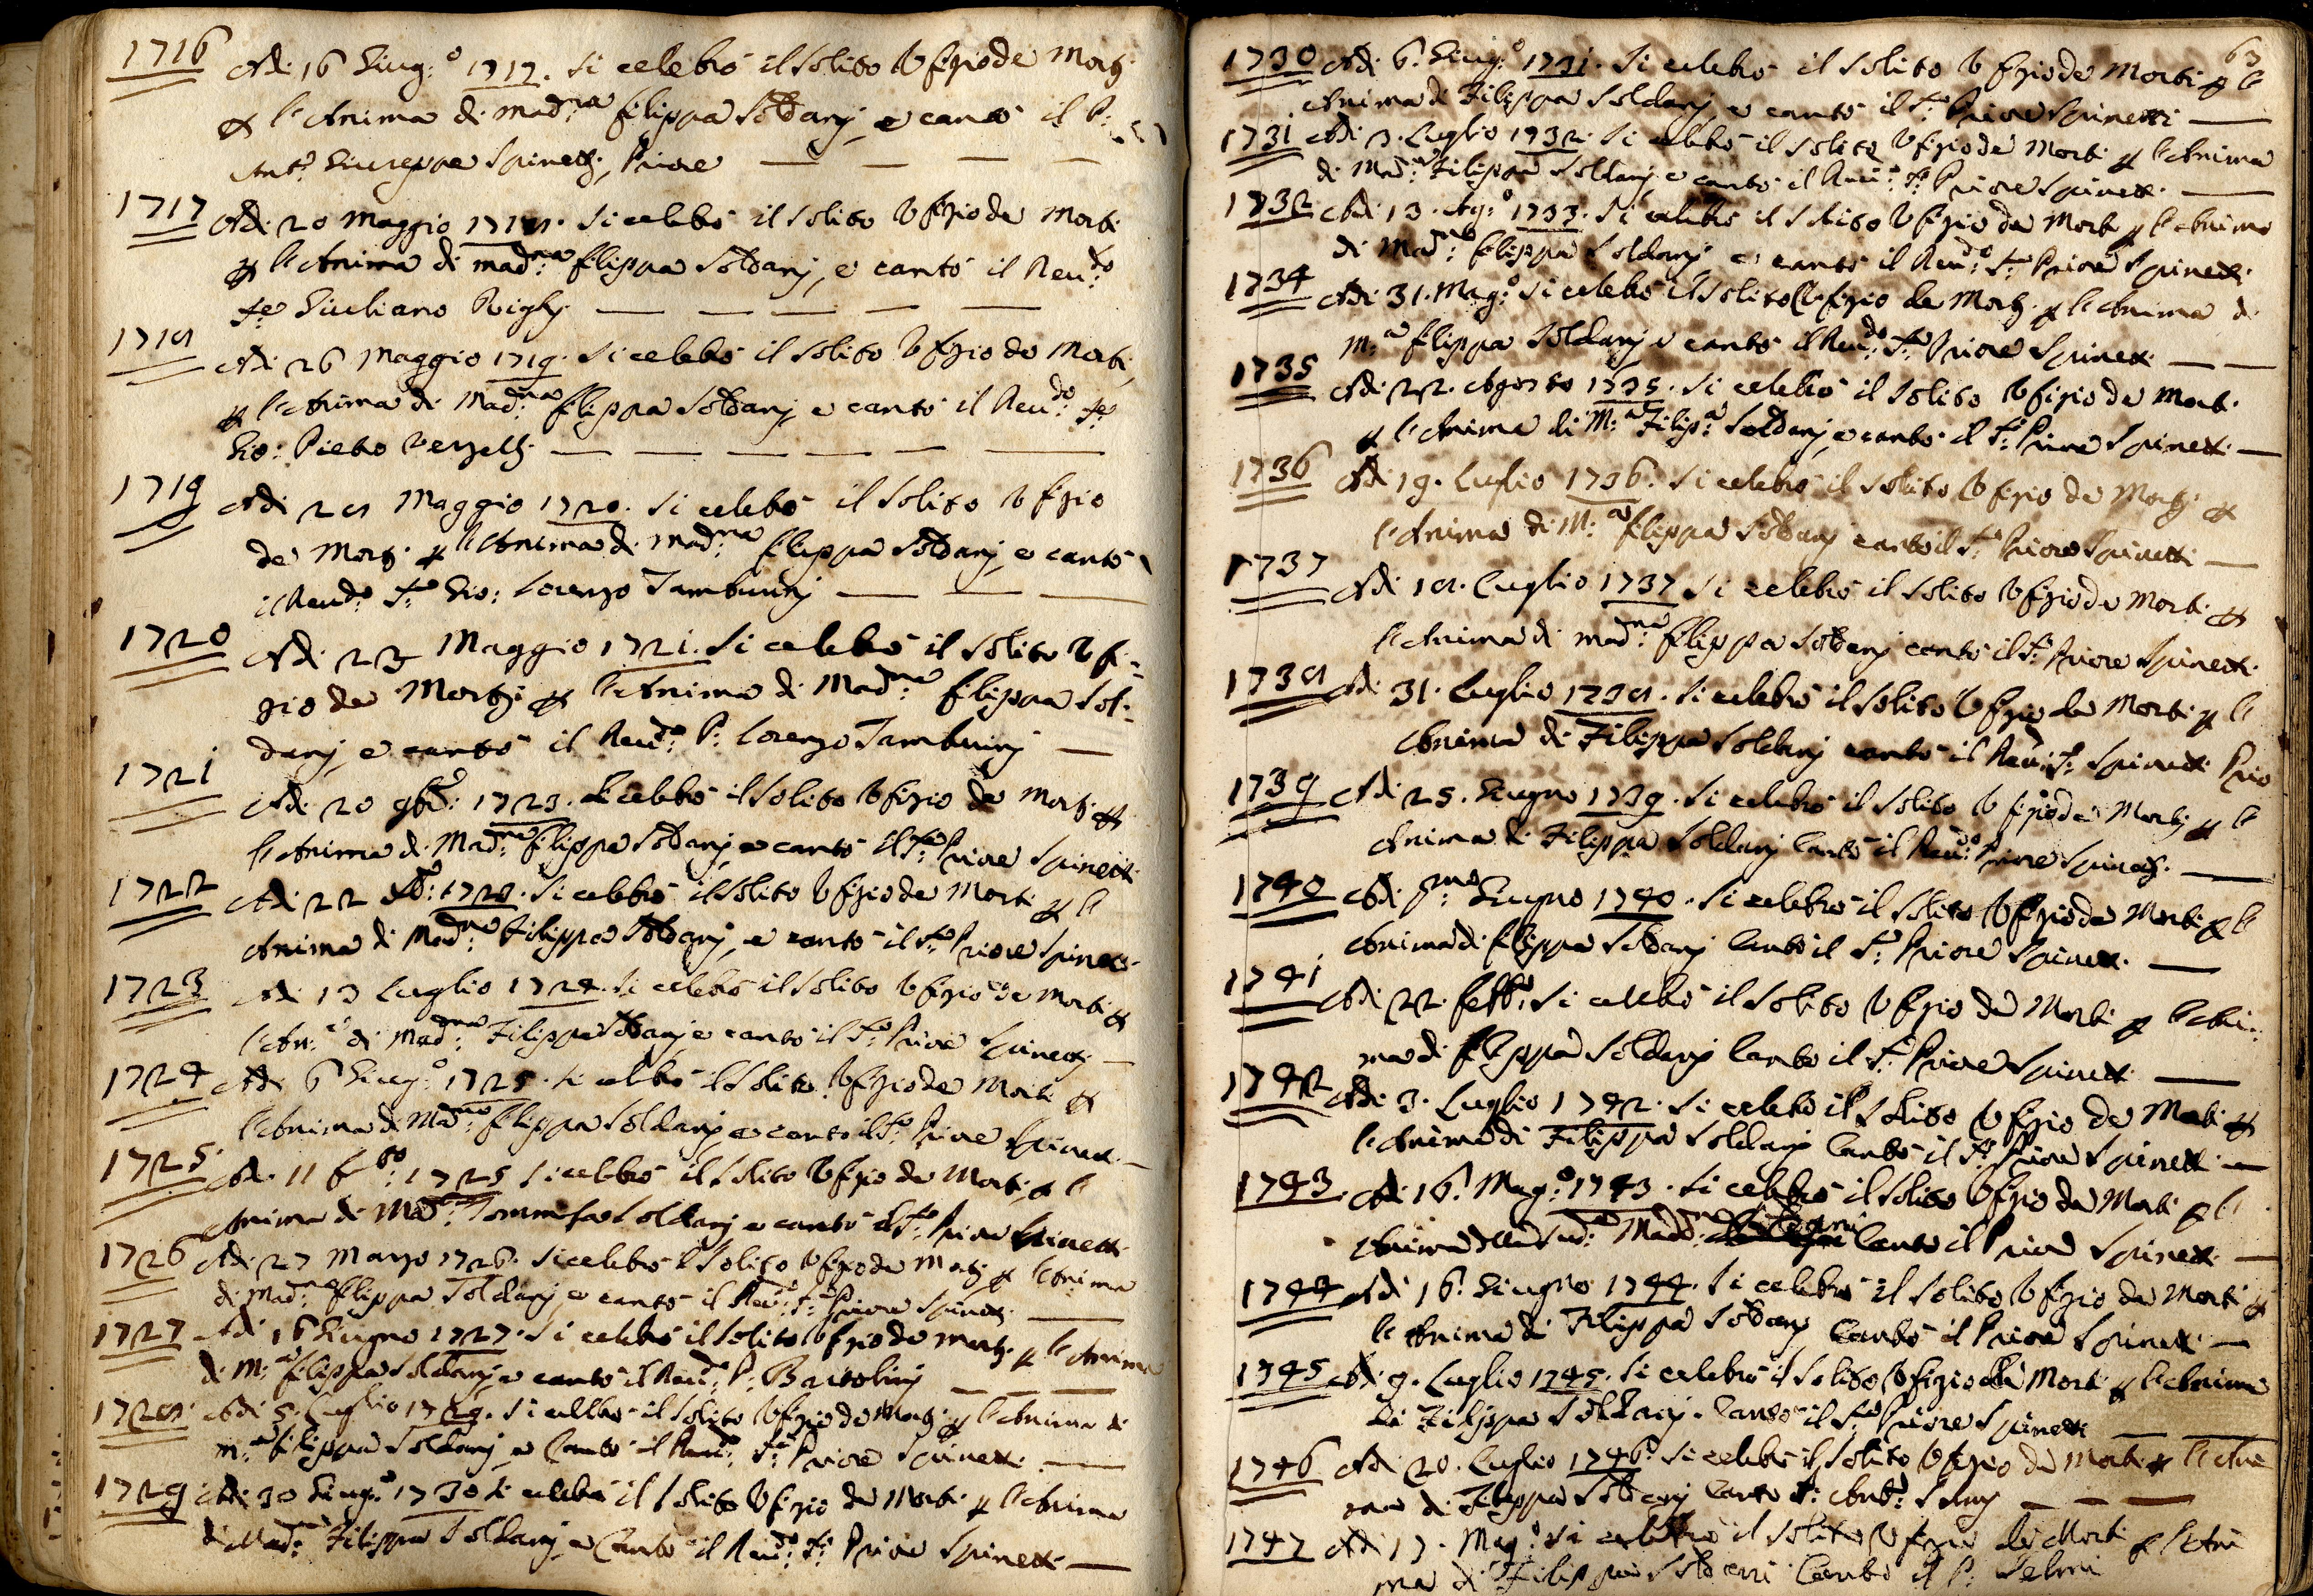 1716 Adi 16 Giug:o 1717. Si celebrò il solito Ufizio de Morti
p l'Anima di Mad:na Filippa Soldanj, e cantò il P:
Ant:o Giuseppe Spinetti, Priore
1717 Adi 20 Maggio 1718. Si celebrò il solito Ufizio de Morti
p l'Anima di Mad:na Filippa Soldanj, e cantò il Reu:do
Giuliano Righj
1718 Adi 26 Maggio 1719. Si celebrò il solito Ufizio de Morti,
p l'Anima di Mad:na Filippa Soldanj, e cantò il Reu:do
Gio: Pietro
1719 Adi 28 Maggio 1720. Si celebrò il solito Ufizio
de Morti p l'Anima di Mad:na Filippa Soldanj, e cantò
il Reu:do Gio: Lorenzo Tamburinj
1720 Adi 23 Maggio 1721. Si celebrò il solito Ufi-
zio de Morti p l'Anima di Mad:na Filippa Sol-
danj, e cantò il Reu:do P: Lorenzo Tamburinj
1721 Adi 20 1723. Si celebrò il solito Ufizio de Morti p
l'Anima di Mad:na Filippa Soldanj, e cantò il Priore Spinetti
1722 Adi 22 Si celebrò il solito Ufizio de Morti p l'
Anima di Mad:na Filippa Soldanj, e cantò il Priore Spinetti
1723 Adi 13 Luglio 1724. Si celebrò il solito Ufizio de Morti p
l'An:a di Mad:na Filippa Soldanj e cantò il Priore Spinetti
1724 Adi 6 Giug:o 1725. Si celebrò il solito Ufizio de Morti p
l'Anima di Mad:na Filippa Soldanj e cantò il Priore Spinetti
1725. Adi 11 1725 Si celebrò il solito Ufizio de Morti p l'
Anima di Mad:na Soldanj e cantò il Priore Spinetti
1726 Adi 27 Marzo 1726. Si celebrò il solito Ufizio de Morti p l'Anima
di Mad:na Filippa Soldanj e cantò il Reu:do Priore Spinetti
1727 Adi 16 Giugno 1727. Si celebrò il solito Ufizio de Morti p l'Anima
di M:a Filippa Soldanj e cantò il Reu:do P: Bartolinj
1728. Adi 5. Luglio 1729. Si celebrò il solito Ufizio de Morti p l'Anima di
M:a Filippa Soldanj e Cantò il Reu:do Priore Spinetti
1729 Adi 30 Giug:o 1730 Si celebrò il solito Ufizio de Morti p l'Anima
di Mad:na Filippa Soldanj, e Cantò il Reu:do Priore Spinetti
63
1730 Adi 6. Giug:o 1731. Si celebrò il solito Ufizio de Morti p l'
Anima di Filippa Soldanj e cantò il Priore Spinetti
1731 Adi 3. Luglio 1732. Si celebrò il solito Ufizio de Morti p l'Anima
di Mad:na Filippa Soldanj e cantò il Reu:do Priore Spinetti
1732 Adi 13. Ag:o 1733. Si celebrò il solito Ufizio de Morti p l'Anima
di Mad:na Filippa Soldanj e cantò il Reu:do Priore Spinetti
1734 Adi 31. Mag:o Si celebrò il solito Ufizio de Morti p l'Anima di
M:a Filippa Soldanj e cantò il Reu:do Priore Spinetti
1735 Adi 22. Agosto 1735. Si celebrò il solito Ufizio de Morti
p l'Anima di M:a Filip:a Soldanj e cantò il Priore Spinetti
1736 Adi 19. Luglio 1736. Si celebrò il solito Ufizio de Morti p
l'Anima di M:a Filippa Soldanj cantò il Priore Spinetti
1737 Adi 18. Luglio 1737 Si celebrò il solito Ufizio de Morti p
l'Anima di Mad:na Filippa Soldanj cantò il Priore Spinetti
1738 Adi 31. Luglio 1738. Si celebrò il solito Ufizio de Morti p l'
Anima di Filippa Soldanj cantò il Reu:do Spinetti Prio
1739 Adi 25. Giugno 1739. Si celebrò il solito Ufizio de Morti p l'
Anima di Filippa Soldanj Cantò il Reu:do Priore Spinetti
1740 Adi p:mo Giugno 1740. Si celebrò il solito Ufizio de Morti p l'
Anima di Filippa Soldanj Cantò il Priore Spinetti
1741 Adi 22. Febb:o Si celebrò il solito Ufizio de Morti p l'Ani-
ma di Filippa Soldanj Cantò il Priore Spinetti
1742 Adi 3. Luglio 1742. Si celebrò il solito Ufizio de Morti p
l'Anima di Filippa Soldanj Cantò il Priore Spinetti
1743. Adi 16. Mag:o 1743. Si celebrò il solito Ufizio de Morti p l'
Anima della Sud:a Madd:na Cantò il Priore Spinetti
1744 Adi 16. Giugno 1744. Si celebrò il solito Ufizio de Morti p
l'Anima di Filippa Soldanj Cantò il Priore Spinetti
1745 Adi 9. Luglio 1745. Si celebrò il solito Ufizio de Morti p l'Anima
di Filippa Soldanj. Cantò il Priore Spinetti
1746 Adi 20. Luglio 1746. Si celebrò il solito Ufizio de Morti p l'Ani
ma di Filippa Soldanj Cantò Ant:o
1747 Adi 17. Mag:o Si celebrò il solito Ufizio de Morti p l'Ani
ma di Filippa Soldani Cantò il P: Selmi